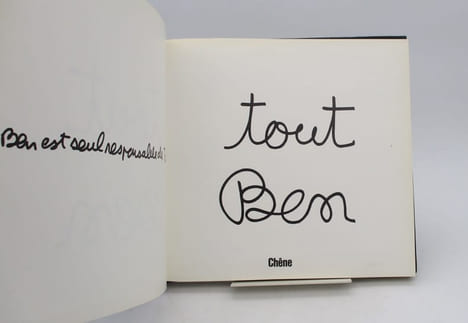 Ben est seul responsable de
tout
Ben
Chêne